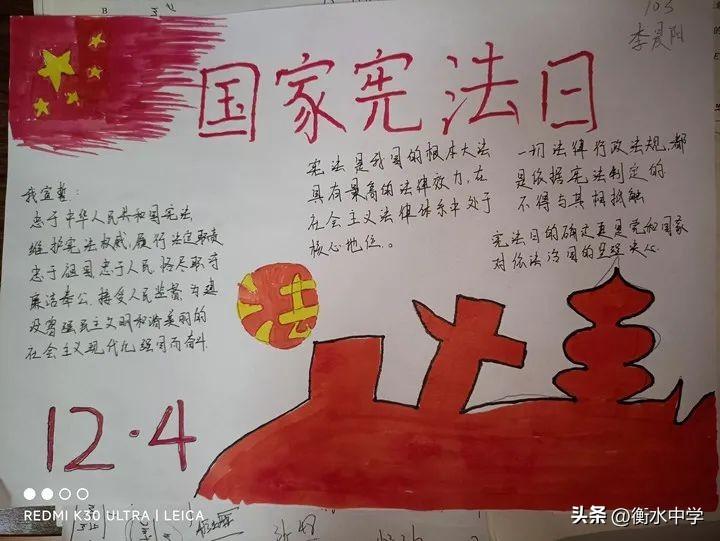 103
李晨阳
国家宪法日
我宣誓:
忠于中华人民共和国宪法
维护宪法权威,履行法定职责
忠于祖国忠于人民 恪尽职守
廉洁奉公,接受人民监督,为建
设富强民主文明和谐美丽的
社会主义现代化强国而奋斗
宪法是我国的根本大法
具有最高的法律效力,在
社会主义法律体系中处于
核心地位。
一切法律行政法规,都
是依据宪法制定的
不得与其相抵触
宪法日的确定更是党和国家
对依法治国的坚强决心
法
12·4
REDMI K30 ULTRA | LEICA
头条 @衡水中学